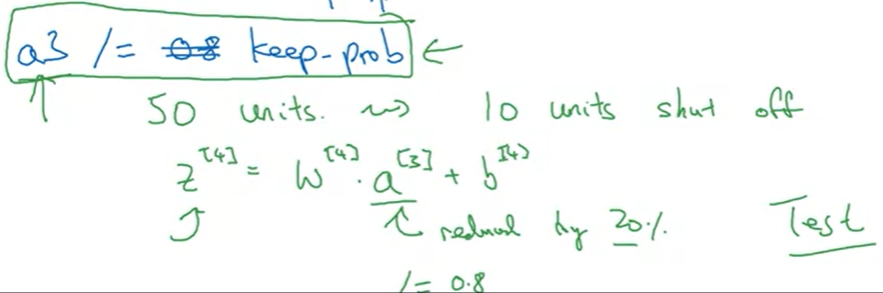 a3 /= 0.8 keep-prob ←
50 units. ⇝ 10 units shut off
z^[4] = W^[4] · a^[3] + b^[4]
reduced by 20%. Test
/= 0.8